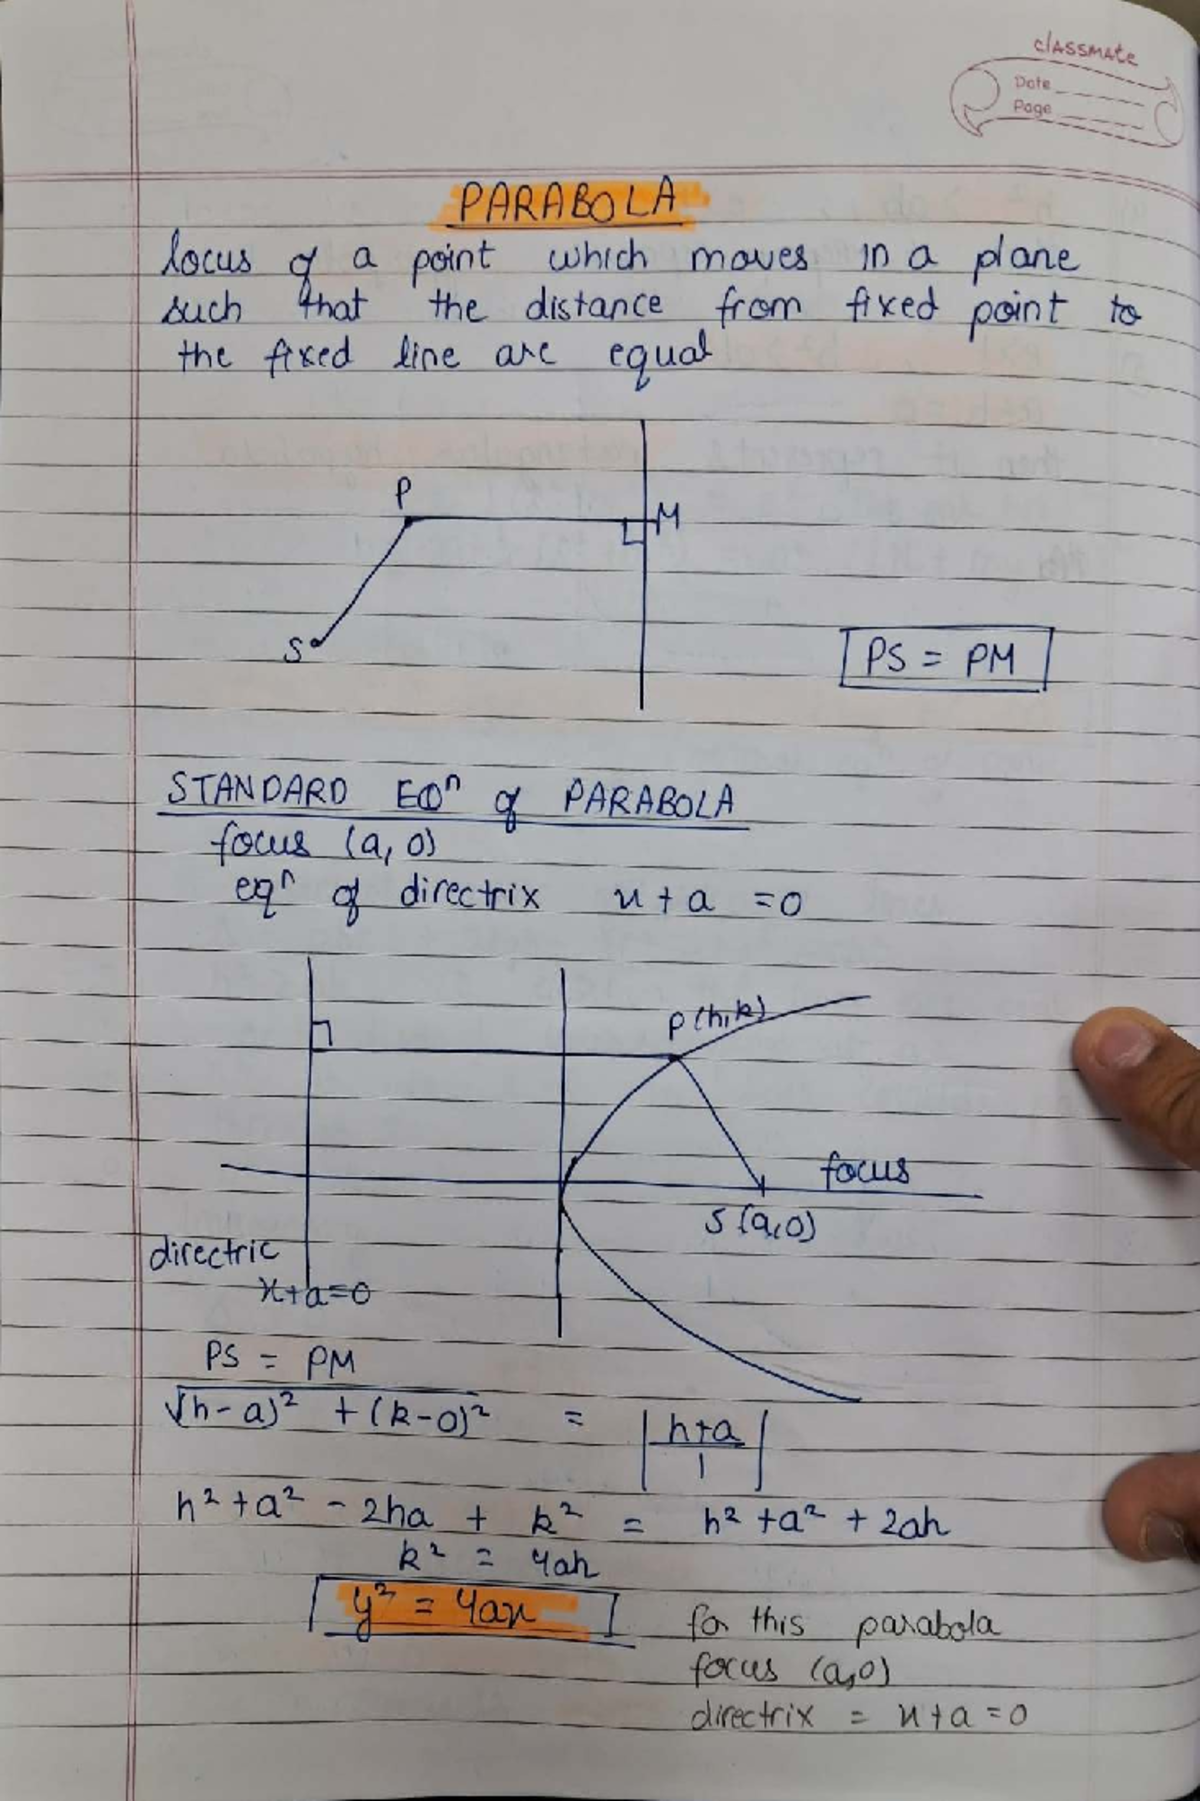 classmate
Date
Page
PARABOLA
locus of a point which moves in a plane
such that the distance from fixed point to
the fixed line are equal
P
M
S
PS = PM
STANDARD EQⁿ of PARABOLA
focus (a, 0)
eqⁿ of directrix x + a = 0
P(h,k)
focus
S(a,0)
directric
x+a=0
PS = PM
√(h-a)² + (k-0)² = |h+a/1|
h² + a² - 2ha + k² = h² + a² + 2ah
k² = 4ah
y² = 4ax
for this parabola
focus (a,0)
directrix = x+a=0